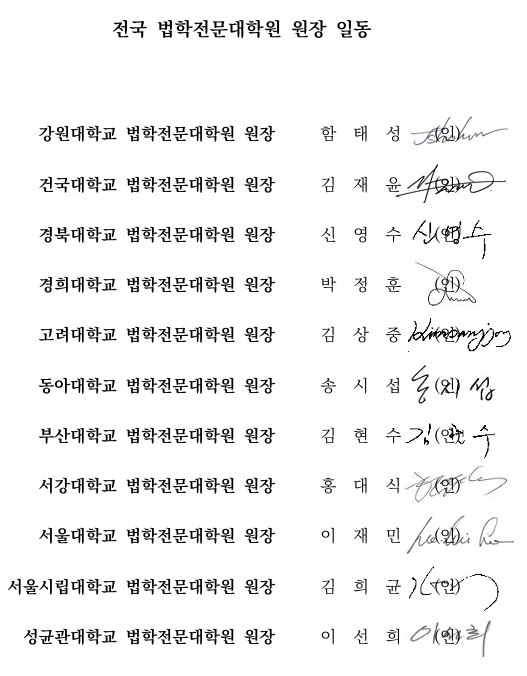 전국 법학전문대학원 원장 일동
강원대학교 법학전문대학원 원장 함 태 성 (인)
건국대학교 법학전문대학원 원장 김 재 윤 (인)
경북대학교 법학전문대학원 원장 신 영 수 (인) 신영수
경희대학교 법학전문대학원 원장 박 정 훈 (인)
고려대학교 법학전문대학원 원장 김 상 중 (인)
동아대학교 법학전문대학원 원장 송 시 섭 (인) 송시섭
부산대학교 법학전문대학원 원장 김 현 수 (인) 김현수
서강대학교 법학전문대학원 원장 홍 대 식 (인)
서울대학교 법학전문대학원 원장 이 재 민 (인)
서울시립대학교 법학전문대학원 원장 김 희 균 (인)
성균관대학교 법학전문대학원 원장 이 선 희 (인) 이선희